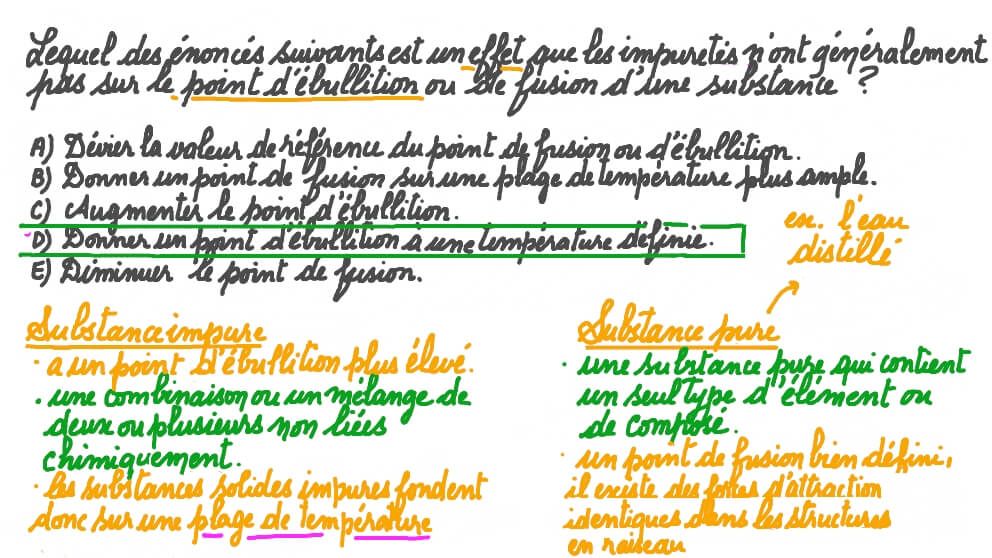 Lequel des énoncés suivants est un effet que les impuretés n'ont généralement
pas sur le point d'ébullition ou de fusion d'une substance ?
A) Dévier la valeur de référence du point de fusion ou d'ébullition.
B) Donner un point de fusion sur une plage de température plus ample.
C) Augmenter le point d'ébullition.
D) Donner un point d'ébullition à une température définie.
E) Diminuer le point de fusion.
ex. l'eau
distillé
Substance impure
· a un point d'ébullition plus élevé.
· une combinaison ou un mélange de
deux ou plusieurs non liées
chimiquement.
· les substances solides impures fondent
donc sur une plage de température
Substance pure
· une substance pure qui contient
un seul type d'élément ou
de composé.
· un point de fusion bien défini,
il existe des forces d'attraction
identiques dans les structures
en raiseau